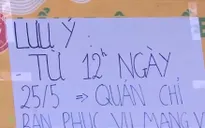 LƯU Ý:
TỪ 12h NGÀY
25/5 => QUÁN CHỈ
BÁN PHỤC VỤ MANG V